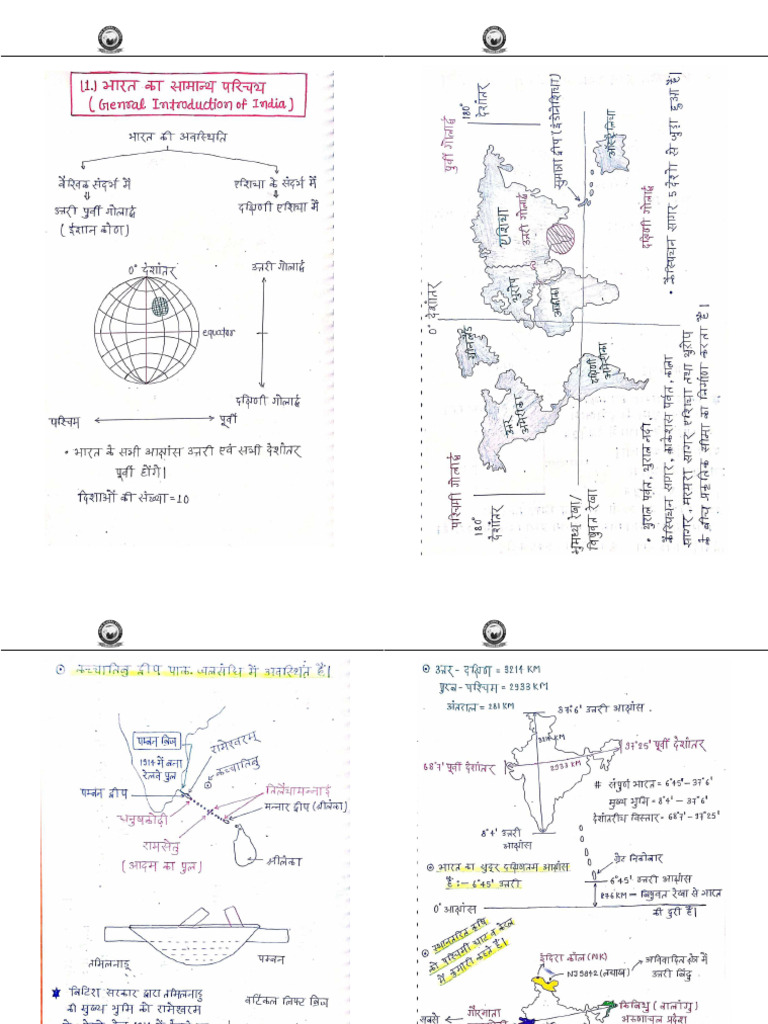 (1.) भारत का सामान्य परिचय
( Genral Introduction of India)
भारत की अवस्थिति
वैश्विक संदर्भ में
उत्तरी पूर्वी गोलार्द्ध
( ईशान कोण )
एशिया के संदर्भ में
दक्षिणी एशिया में
0° देशांतर
उत्तरी गोलार्द्ध
equator
दक्षिणी गोलार्द्ध
पश्चिम
पूर्वी
• भारत के सभी अक्षांस उत्तरी एवं सभी देशांतर
पूर्वी होंगे।
दिशाओं की संख्या = 10
पश्चिमी गोलार्द्ध
180°
देशांतर
0° देशांतर
पूर्वी गोलार्द्ध
180°
देशांतर
उत्तर
अमेरिका
ग्रीनलैंड
यूरोप
एशिया
उत्तरी गोलार्द्ध
अफ्रीका
दक्षिणी
अमेरिका
सुमात्रा द्वीप (इंडोनेशिया)
ऑस्ट्रेलिया
भूमध्य रेखा/
विषुवत रेखा
दक्षिणी गोलार्द्ध
• कैस्पियन सागर 5 देशो से जुड़ा हुआ है।
• यूराल पर्वत, यूराल नदी,
कैस्पियन सागर, काकेशस पर्वत, काला
सागर, मरमरा सागर एशिया तथा यूरोप
के बीच प्राकृतिक सीमा का निर्माण करता है।
⊙ कच्चातिवु द्वीप पाक जलसंधि में अवस्थित है।
पम्बन ब्रिज
1914 में बना
रेलवे पुल
रामेस्वरम्
कच्चातिवु
पम्बन द्वीप
धनुषकोढ़ी
तिलैयामन्नाई
मन्नार द्वीप (श्रीलंका)
रामसेतु
( आदम का पुल)
श्रीलंका
तमिलनाडू
पम्बन
ब्रिटिश सरकार द्वारा तमिलनाडू
की मुख्य भूमि को रामेस्वरम
वर्टिकल लिफ्ट ब्रिज
⊙ उत्तर - दक्षिण = 3214 KM
पूरब - पश्चिम = 2933 KM
अंतराल = 281 KM
37°6' उत्तरी अक्षांस
3214 KM
97°25' पूर्वी देशांतर
68°7' पूर्वी देशांतर
2933 KM
# संपूर्ण भारत = 6°45' - 37°6'
मुख्य भूमि = 8°4' - 37°6'
देशांतरीय विस्तार = 68°7' - 97°25'
8°4' उत्तरी
अक्षांस
ग्रेट निकोबार
⊙ भारत का सुदूर दक्षिणतम अक्षांस
है :- 6°45' उत्तरी
6°45' उत्तरी अक्षांस
876 KM - विषुवत रेखा से भारत
की दुरी है।
0° अक्षांस
⊙ स्थानांतरित कृषि
को पश्चिमी घाट व केरल
में कुमारी कहते हैं।
इंदिरा कॉल (JK)
अविवादित क्षेत्र में
उत्तरी बिंदु
किबिथु ( वालांगु)
अरुणाचल प्रदेश
गौरमोता
सबसे